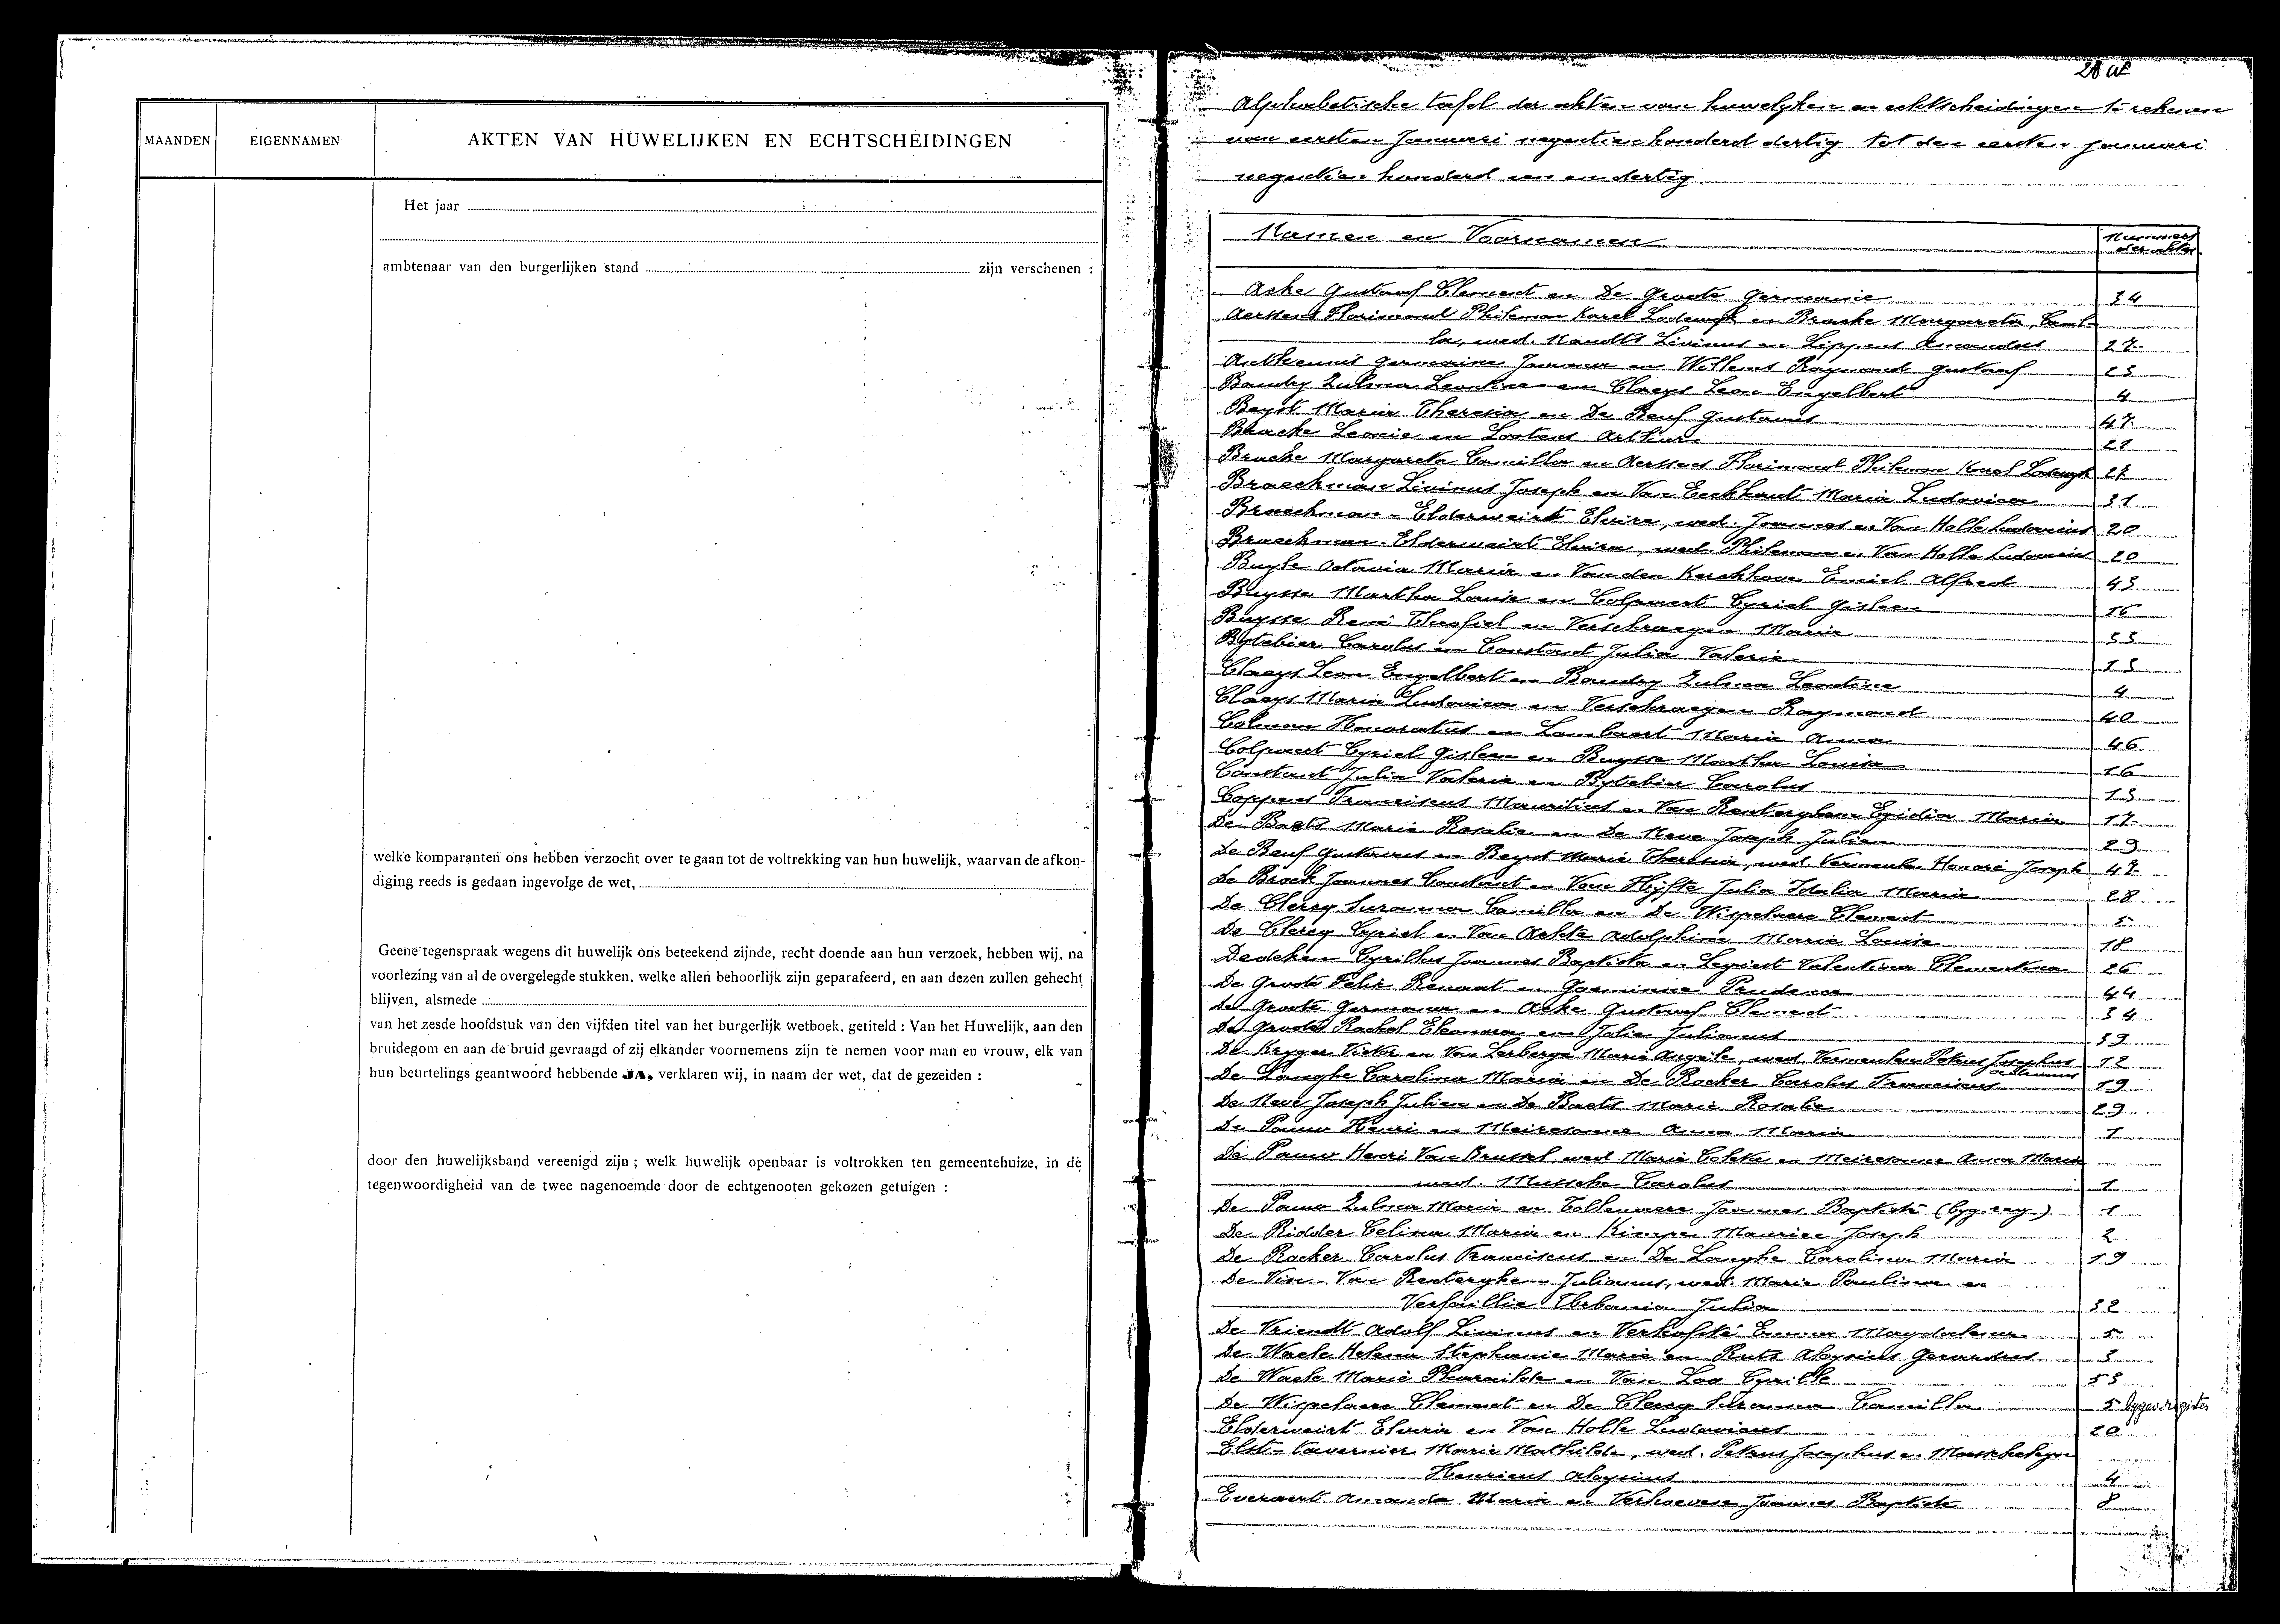 MAANDEN
EIGENNAMEN
AKTEN VAN HUWELIJKEN EN ECHTSCHEIDINGEN
Het jaar
ambtenaar van den burgerlijken stand zijn verschenen :
welke komparanten ons hebben verzocht over te gaan tot de voltrekking van hun huwelijk, waarvan de afkon-
diging reeds is gedaan ingevolge de wet,
Geene tegenspraak wegens dit huwelijk ons beteekend zijnde, recht doende aan hun verzoek, hebben wij, na
voorlezing van al de overgelegde stukken, welke allen behoorlijk zijn geparafeerd, en aan dezen zullen gehecht
blijven, alsmede
van het zesde hoofdstuk van den vijfden titel van het burgerlijk wetboek, getiteld : Van het Huwelijk, aan den
bruidegom en aan de bruid gevraagd of zij elkander voornemens zijn te nemen voor man en vrouw, elk van
hun beurtelings geantwoord hebbende JA, verklaren wij, in naam der wet, dat de gezeiden :
door den huwelijksband vereenigd zijn ; welk huwelijk openbaar is voltrokken ten gemeentehuize, in de
tegenwoordigheid van de twee nagenoemde door de echtgenooten gekozen getuigen :
Alphabetische tafel der akten van huwelyken en echtscheidingen te rekenen
van eersten Januari negentien honderd dertig tot den eersten januari
negentien honderd een en dertig
Namen en Voornamen Nummers der akten
Acke Gustaaf Clement en De Groote Germanie 34
Aerssens Florimond Philemon Karel Lodewyk en Bracke Margareta, Camil-
la, wed. Naudts Livinus en Lippens Amandus 27
Antheunis Germaine Joanna en Willems Raymond Gustaaf 23
Baudry Zulma Leontine en Claeys Leon Engelbert 4
Beyst Maria Theresia en De Beuf Gustavus 47
Bracke Leonie en Lootens Arthur 21
Bracke Margareta Camilla en Aerssens Florimond Philemon Karel Lodewyk 27
Braeckman Livinus Joseph en Van Eeckhaut Maria Ludovica 31
Braeckman - Elderweirt Elvira, wed. Joannes en Van Holle Ludovicus 20
Braeckman - Elderweirt Elvira, wed. Philemon en Van Holle Ludovicus 20
Buyle Octavia Maria en Van den Kerckhove Emiel Alfred 43
Buysse Martha Louisa en Colpaert Cyriel Gisleen 16
Buysse René Theofiel en Verschraegen Maria 33
Bytebier Carolus en Constant Julia Valerie 13
Claeys Leon Engelbert en Baudry Zulma Leontine 4
Claeys Maria Ludovica en Verschraegen Raymond 40
Colman Honoratus en Lambaert Maria Anna 46
Colpaert Cyriel Gisleen en Buysse Martha Louisa 16
Constant Julia Valerie en Bytebier Carolus 13
Coppens Franciscus Mauritius en Van Renterghem Egidia Maria 17
De Baets Marie Rosalie en De Neve Joseph Julien 29
De Beuf Gustavus en Beyst Marie Theresia, wed. Vermeulen Honoré Joseph 47
De Brock Joannes Constant en Van Hijfte Julia Idalia Maria 28
De Clercq Suzanna Camilla en De Wispelaere Clement 5
De Clercq Cyriel en Van Achte Adolphine Marie Louise 18
Dedeken Cyrillus Joannes Baptista en Legiest Valentina Clementina 26
De Groote Felix Renaat en Goeminne Prudence 44
De Groote Germania en Acke Gustaaf Clement 34
De Groote Rachel Eleonora en Jolie Julianus 39
De Kryger Victor en Van Lerberge Marie Angele, wed. Vermeulen Petrus Josephus 12
De Langhe Carolina Maria en De Rocker Carolus Franciscus 19
De Neve Joseph Julien en De Baets Marie Rosalie 29
De Pauw Henri en Meiresonne Anna Maria 1
De Pauw Henri Van Brussel, wed. Marie Coleta en Meiresonne Anna Maria
wed. Mussche Carolus 1
De Pauw Zulma Maria en Tollenaere Joannes Baptiste (byg. reg.) 1
De Ridder Celina Maria en Kimpe Maurice Joseph 2
De Rocker Carolus Franciscus en De Langhe Carolina Maria 19
De Vin - Van Renterghem Julianus, wed. Marie Paulina en
Verfaillie Urbania Julia 32
De Vriendt Adolf Livinus en Verhofsté Emma Magdalena 5
De Waele Helena Stephanie Marie en Ruts Aloysius Gerardus 3
De Waele Marie Pharailde en Van Loo Cyrille 53
De Wispelaere Clement en De Clercq Suzanna Camilla 5 bygev. register
Elderweirt Elvira en Van Holle Ludovicus 20
Elst - Tavernier Marie Mathilde, wed. Petrus Josephus en
Henricus Aloysius 4
Everaert Amanda Maria en Verhoeven Joannes Baptiste 8